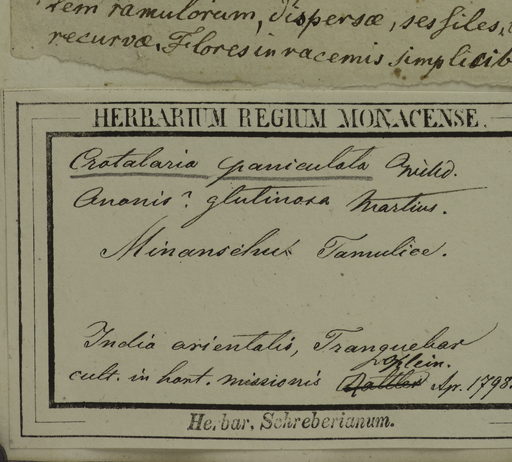 rem ramulorum, dispersæ, sessiles,
recurvæ. Flores in racemis simplicib
HERBARIUM REGIUM MONACENSE.
Crotalaria paniculata Willd.
Anonis? glutinosa Martius.
Minanschul Tamulice.
India orientalis, Tranquebar
Klein.
cult. in hort. missionis Rottler Apr. 1798.
Herbar. Schreberianum.